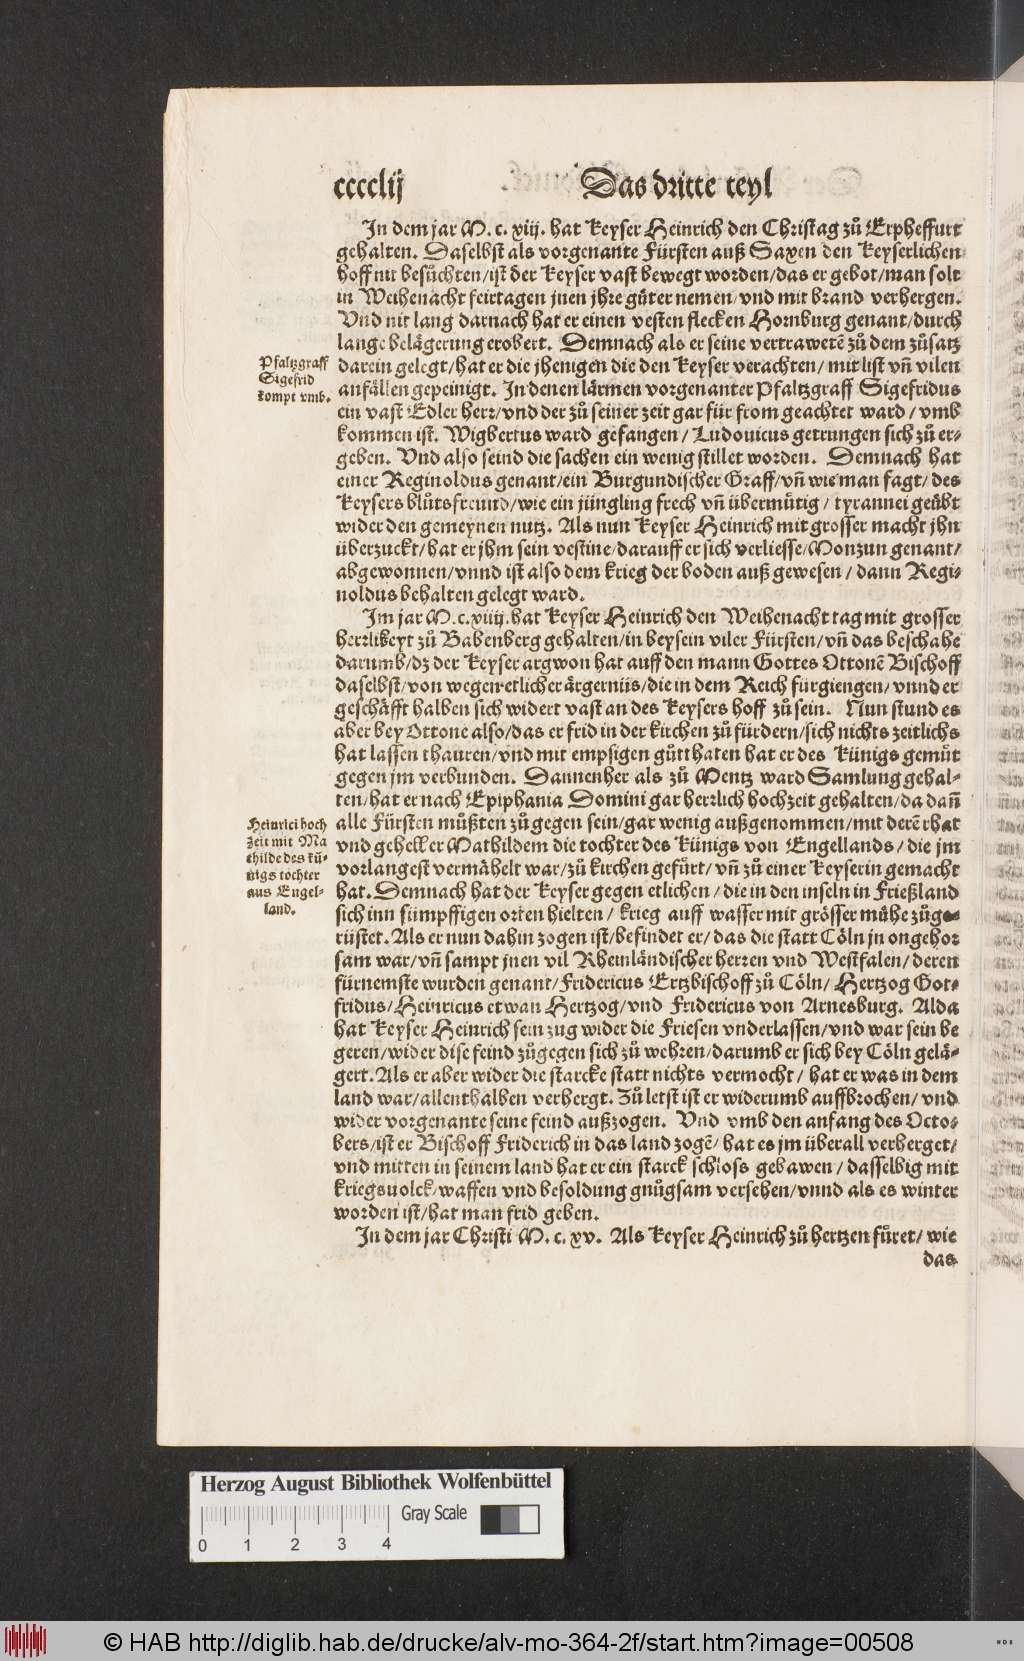 cccclij
Das dritte teyl
In dem jar M. c. xiij. hat Keyser Heinrich den Christag zů Erpheffurt
gehalten. Daselbst als vorgenante Fürsten auß Saxen den Keyserlichen
hoff nit besůchten/ist der Keyser vast bewegt worden/das er gebot/man solt
in Weihenacht feirtagen jnen jhre güter nemen/vnd mit brand verhergen.
Vnd nit lang darnach hat er einen vesten flecken Hornburg genant/durch
lange belägerung erobert. Demnach als er seine vertrawetẽ zů dem zůsatz
Pfaltzgraff
Sigefrid
kompt vmb.
darein gelegt/hat er die jhenigen die den Keyser verachten/mit list vñ vilen
anfällen gepeinigt. In denen lärmen vorgenanter Pfaltzgraff Sigefridus
ein vast Edler herr/vnd der zů seiner zeit gar für from geachtet ward/vmb
kommen ist. Wigbertus ward gefangen/Ludouicus getrungen sich zů er-
geben. Vnd also seind die sachen ein wenig stillet worden. Demnach hat
einer Reginoldus genant/ein Burgundischer Graff/vñ wie man sagt/des
Keysers blůtsfreund/wie ein jüngling frech vñ übermütig/tyrannei geübt
wider den gemeynen nutz. Als nun Keyser Heinrich mit grosser macht jhn
überzuckt/hat er jhm sein vestine/darauff er sich verliesse/Monzun genant/
abgewonnen/vnnd ist also dem krieg der boden auß gewesen/dann Regi-
noldus behalten gelegt ward.
Im jar M.c.xiiij.hat Keyser Heinrich den Weihenacht tag mit grosser
herrlikeyt zů Babenberg gehalten/in beysein viler Fürsten/vñ das beschahe
darumb/dz der Keyser argwon hat auff den mann Gottes Ottonẽ Bischoff
daselbst/von wegen etlicher ärgerniis/die in dem Reich fürgiengen/vnnd er
geschäfft halben sich widert vast an des Keysers hoff zů sein. Nun stund es
aber bey Ottone also/das er frid in der kirchen zů fürdern/sich nichts zeitlichs
hat lassen thauren/vnd mit empsigen gůtthaten hat er des Künigs gemüt
gegen jm verbunden. Dannenher als zů Mentz ward Samlung gehal-
ten/hat er nach Epiphania Domini gar herrlich hochzeit gehalten/da dañ
Heinrici hoch
zeit mit Ma
thilde des kü-
nigs tochter
aus Engel-
land.
alle Fürsten můßten zů gegen sein/gar wenig außgenommen/mit derẽ rhat
vnd geheller Mathildem die tochter des Künigs von Engellands/die jm
vorlangest vermähelt war/zů kirchen gefůrt/vñ zů einer Keyserin gemacht
hat. Demnach hat der Keyser gegen etlichen/die in den inseln in Frießland
sich inn sümpffigen orten hielten/krieg auff wasser mit grösser mühe zůge-
rüstet. Als er nun dahin zogen ist/befindet er/das die statt Cöln jn ongehor
sam war/vñ sampt jnen vil Rheinländischer herren vnd Westfalen/deren
fürnemste wurden genant/Fridericus Ertzbischoff zů Cöln/Hertzog Got-
fridus/Heinricus etwan Hertzog/vnd Fridericus von Arnesburg. Alda
hat Keyser Heinrich sein zug wider die Friesen vnderlassen/vnd war sein be
geren/wider dise feind zůgegen sich zů wehren/darumb er sich bey Cöln gelä-
gert. Als er aber wider die starcke statt nichts vermocht/hat er was in dem
land war/allenthalben verhergt. Zů letst ist er widerumb auffbrochen/vnd
wider vorgenante seine feind außzogen. Vnd vmb den anfang des Octo-
bers/ist er Bischoff Friderich in das land zogẽ/hat es jm überall verherget/
vnd mitten in seinem land hat er ein starck schloss gebawen/dasselbig mit
kriegsuolck/waffen vnd besoldung gnůgsam versehen/vnnd als es winter
worden ist/hat man frid geben.
In dem jar Christi M. c. xv. Als Keyser Heinrich zů hertzen füret/wie
das
Herzog August Bibliothek Wolfenbüttel
Gray Scale
0 1 2 3 4
© HAB http://diglib.hab.de/drucke/alv-mo-364-2f/start.htm?image=00508